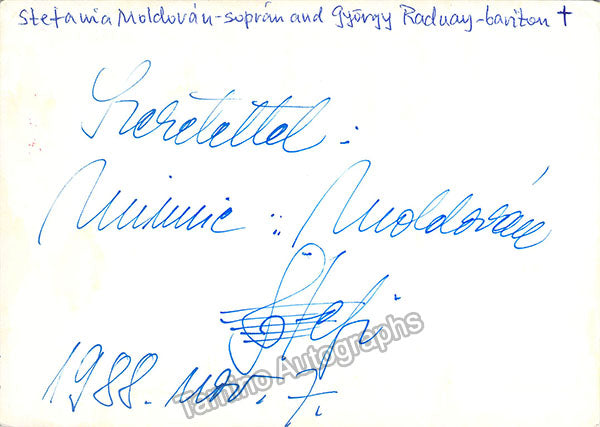 Stefania Moldován-soprán and György Radnay-bariton †
Szeretettel :
Mimmie :: Moldován
Stefi
1988. nov. 7.
Tamino Autographs